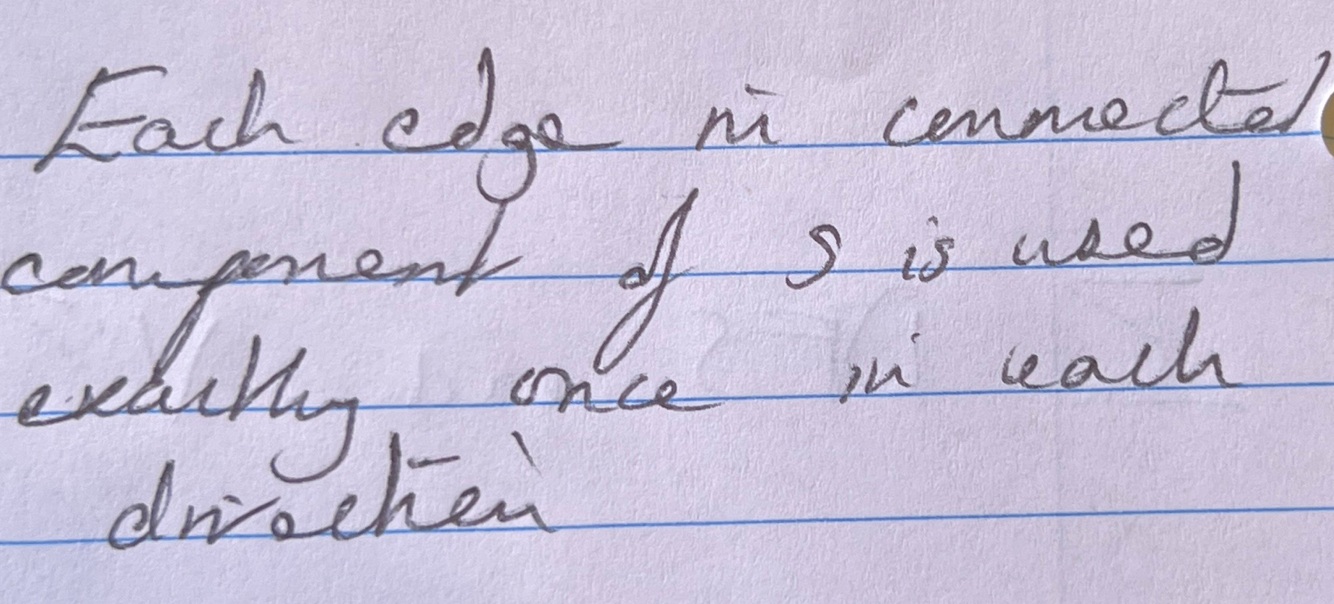 Each edge in connected
component of s is used
exactly once in each
direction